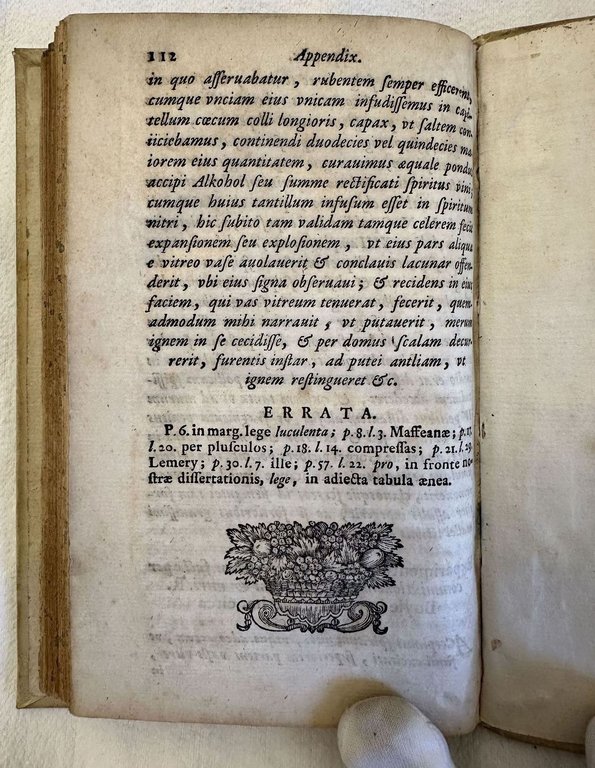 112 Appendix.
in quo asseruabatur, rubentem semper efficerent,
cumque vnciam eius vnicam infudissemus in capi-
tellum cœcum colli longioris, capax, vt saltem con-
iiciebamus, continendi duodecies vel quindecies ma-
iorem eius quantitatem, curauimus æquale pondus
accipi Alkohol seu summe rectificati spiritus vini;
cumque huius tantillum infusum esset in spiritum
nitri, hic subito tam validam tamque celerem fecit
expansionem seu explosionem, vt eius pars aliqua
e vitreo vase auolauerit & conclauis lacunar offen-
derit, vbi eius signa obseruaui; & recidens in eius
faciem, qui vas vitreum tenuerat, fecerit, quem-
admodum mihi narrauit, vt putauerit, merum
ignem in se cecidisse, & per domus scalam decur-
rerit, furentis instar, ad putei antliam, vt
ignem restingueret &c.
ERRATA.
P. 6. in marg. lege luculenta; p. 8. l. 3. Maffeanæ; p.
l. 20. per plusculos; p. 18. l. 14. compressas; p. 21. l. 29.
Lemery; p. 30. l. 7. ille; p. 57. l. 22. pro, in fronte no-
stræ dissertationis, lege, in adiecta tabula ænea.